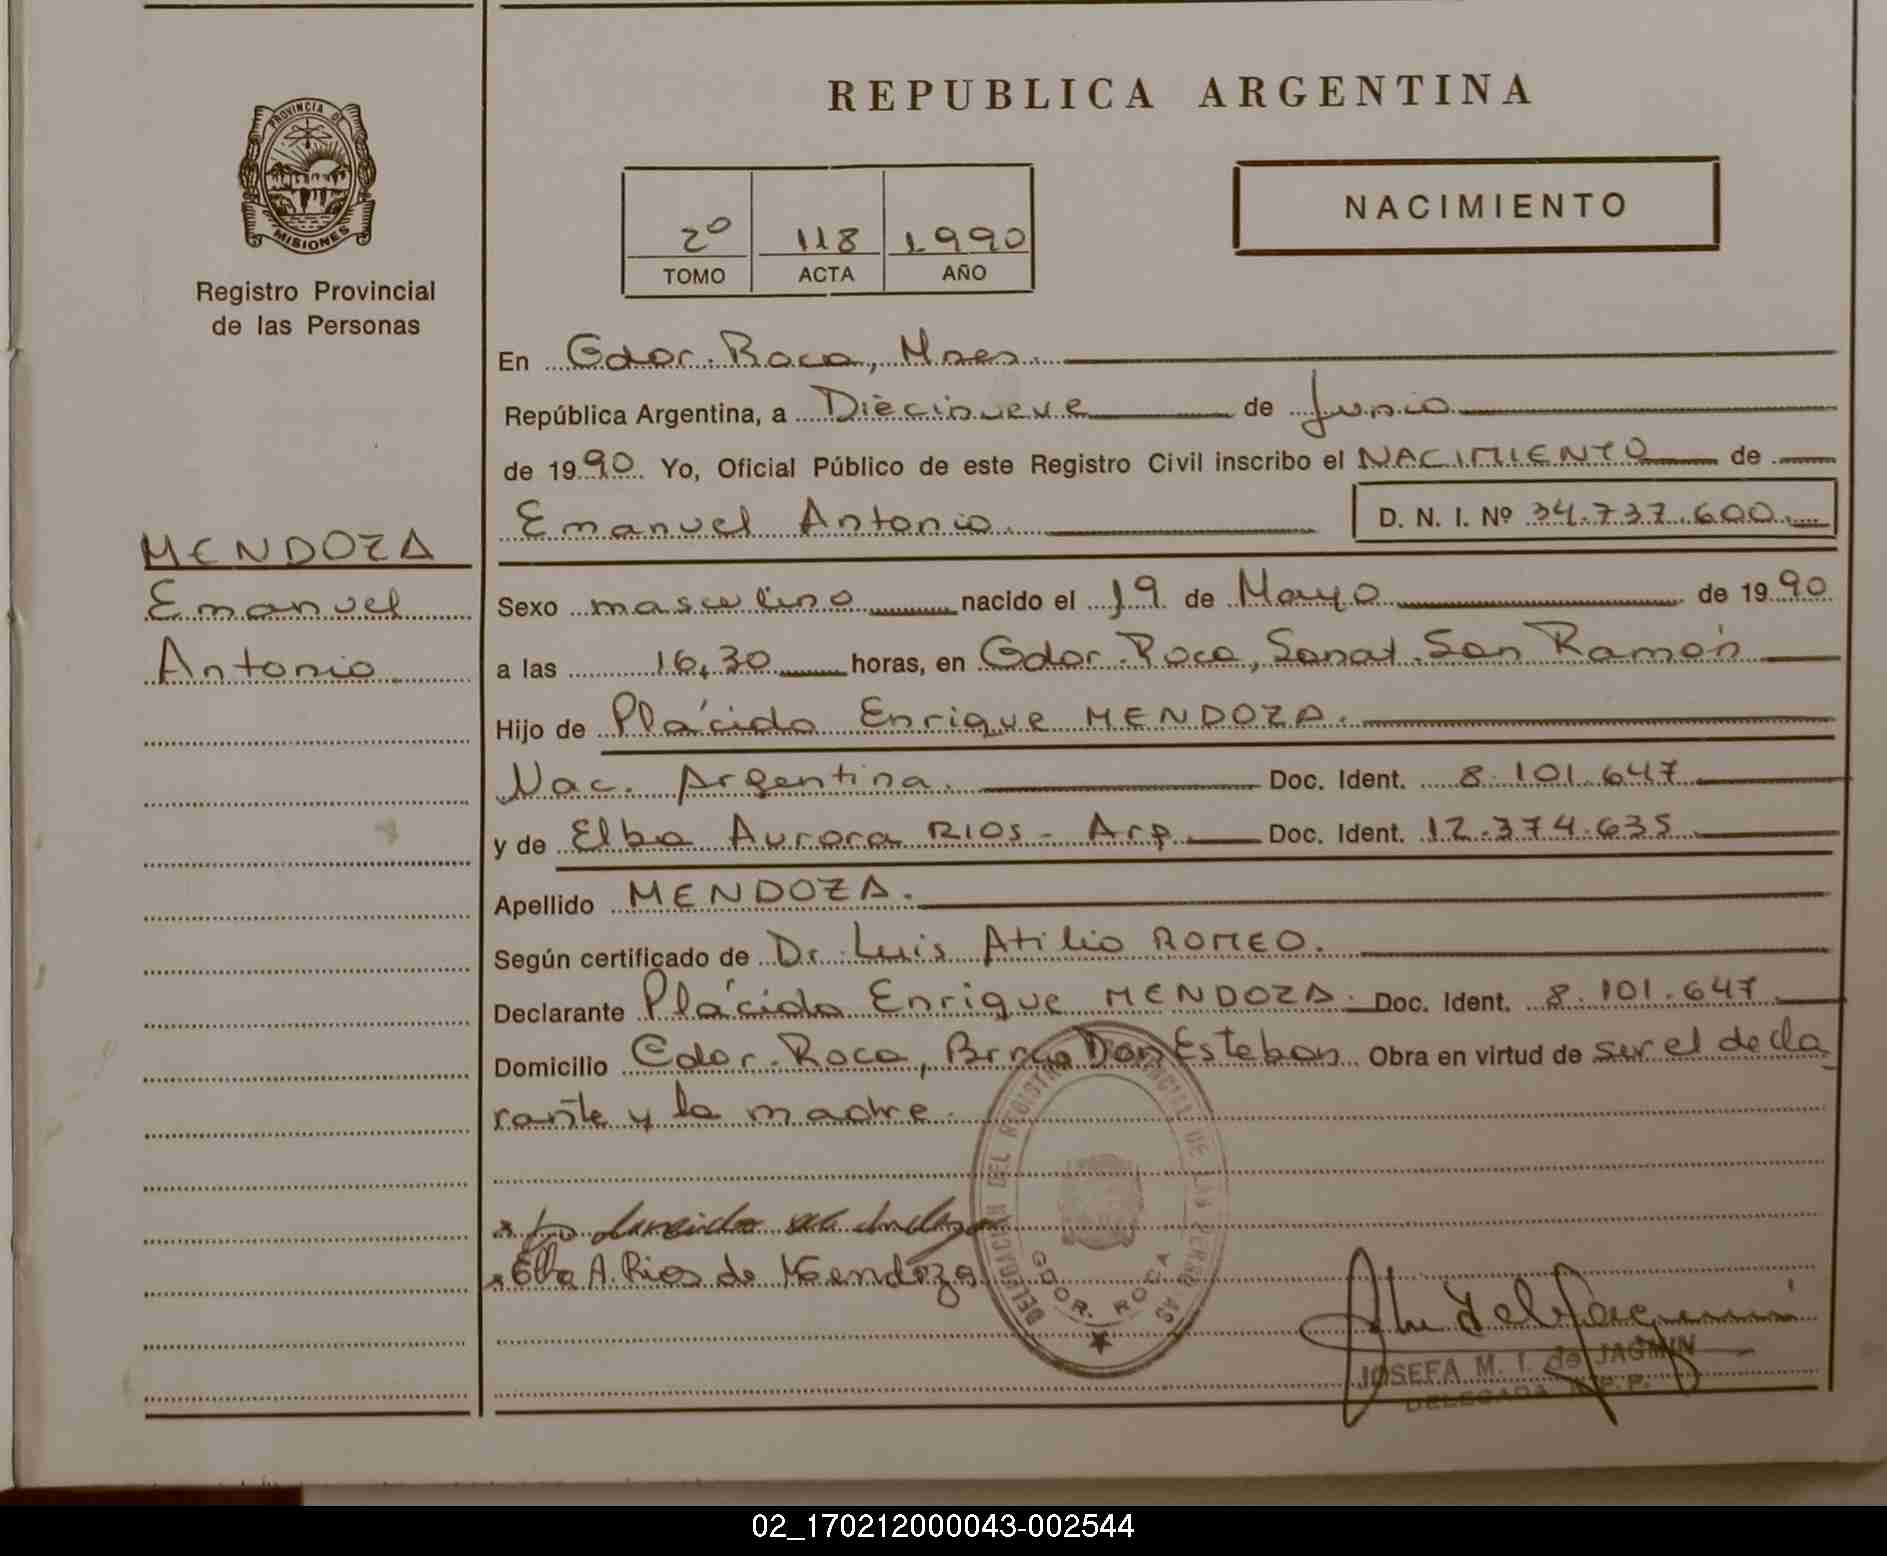 REPUBLICA ARGENTINA
PROVINCIA DE
MISIONES
Registro Provincial
de las Personas
MENDOZA
Emanuel
Antonio
2º 118 1990
TOMO ACTA AÑO
NACIMIENTO
En Gdor. Roca, Mnes.
República Argentina, a Diecinueve de Junio
de 1990. Yo, Oficial Público de este Registro Civil inscribo el NACIMIENTO de
Emanuel Antonio D. N. I. Nº 34.737.600
Sexo masculino nacido el 19 de Mayo de 1990
a las 16,30 horas, en Gdor. Roca, Sanat. San Ramón
Hijo de Plácido Enrique MENDOZA.
Nac. Argentina. Doc. Ident. 8.101.647
y de Elba Aurora RIOS - Arg. Doc. Ident. 12.374.635
Apellido MENDOZA.
Según certificado de Dr. Luis Atilio ROMEO.
Declarante Plácido Enrique MENDOZA. Doc. Ident. 8.101.647
Domicilio Gdor. Roca, Barrio Don Esteban Obra en virtud de ser el decla
rante y la madre.
Elba A. Rios de Mendoza
DELEGACION DEL REGISTRO PROVINCIAL DE LAS PERSONAS
GDOR. ROCA
JOSEFA M. I. de JAGMIN
DELEGADA R.P.P.
02_170212000043-002544